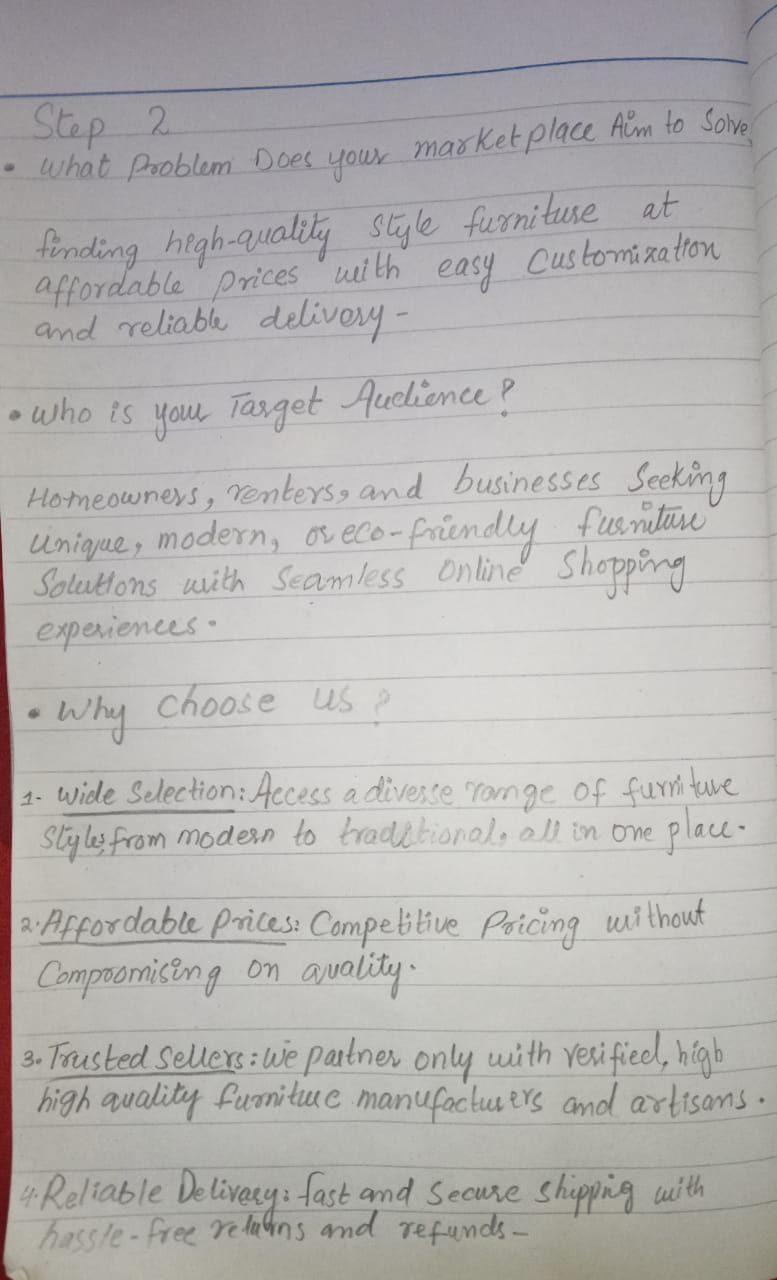 Step 2
• What Problem Does your marketplace Aim to Solve,
finding high-quality style furniture at
affordable prices with easy Customization
and reliable delivery-
• Who is your Target Audience?
Homeowners, renters, and businesses Seeking
Unique, modern, or eco-friendly furniture
Solutions with Seamless Online Shopping
experiences.
• Why Choose us?
1- Wide Selection: Access a diverse range of furniture
Styles, from modern to traditional, all in one place.
2. Affordable Prices: Competitive Pricing without
Compromising on quality.
3. Trusted Sellers: we partner only with verified, high
high quality furniture manufacturers and artisans.
4. Reliable Delivery: fast and Secure Shipping with
hassle-free returns and refunds-